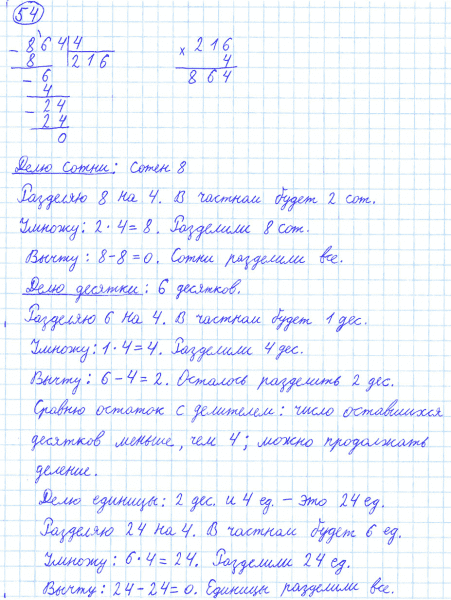 54
- 864 | 4
8 | 216
- 6
4
- 24
24
0
× 216
4
864
Делю сотни: сотен 8
Разделяю 8 на 4. В частном будет 2 сот.
Умножу: 2 · 4 = 8. Разделили 8 сот.
Вычту: 8 - 8 = 0. Сотни разделили все.
Делю десятки: 6 десятков.
Разделяю 6 на 4. В частном будет 1 дес.
Умножу: 1 · 4 = 4. Разделили 4 дес.
Вычту: 6 - 4 = 2. Осталось разделить 2 дес.
Сравню остаток с делителем: число оставшихся
десятков меньше, чем 4; можно продолжать
деление.
Делю единицы: 2 дес. и 4 ед. – это 24 ед.
Разделяю 24 на 4. В частном будет 6 ед.
Умножу: 6 · 4 = 24. Разделили 24 ед.
Вычту: 24 - 24 = 0. Единицы разделили все.